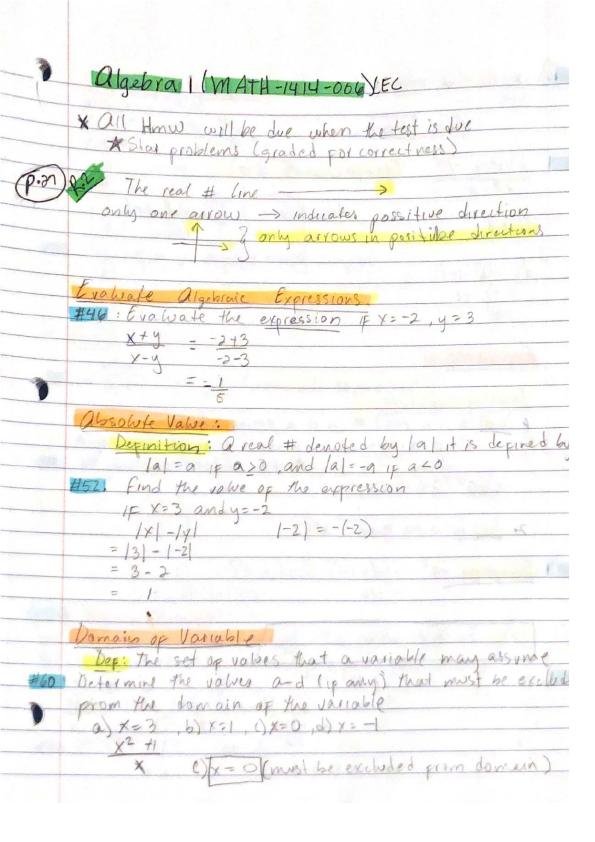 Algebra 1 (MATH-1414-006) LEC
* All Hmw will be due when the test is due
* Star problems (graded for correctness)
p.27 R.2 The real # line
only one arrow → indicates possitive direction
} only arrows in positive directions
Evaluate Algebraic Expressions.
#46: Evaluate the expression if x=-2, y=3
x+y = -2+3
x-y -2-3
= -1
5
Absolute Value:
Definition: A real # denoted by |a| it is defined by
|a|=a if a≥0, and |a|=-a if a<0
#52. Find the value of the expression
if x=3 and y=-2
|x|-|y| |-2| = -(-2)
= |3| - |-2|
= 3 - 2
= 1
Domain of Variable
Def: The set of values that a variable may assume
#60 Determine the values a-d (if any) that must be exclud
from the domain of the variable
a) x=3, b) x=1, c) x=0, d) x=-1
x² +1
x c) x=0 (must be excluded from domain)